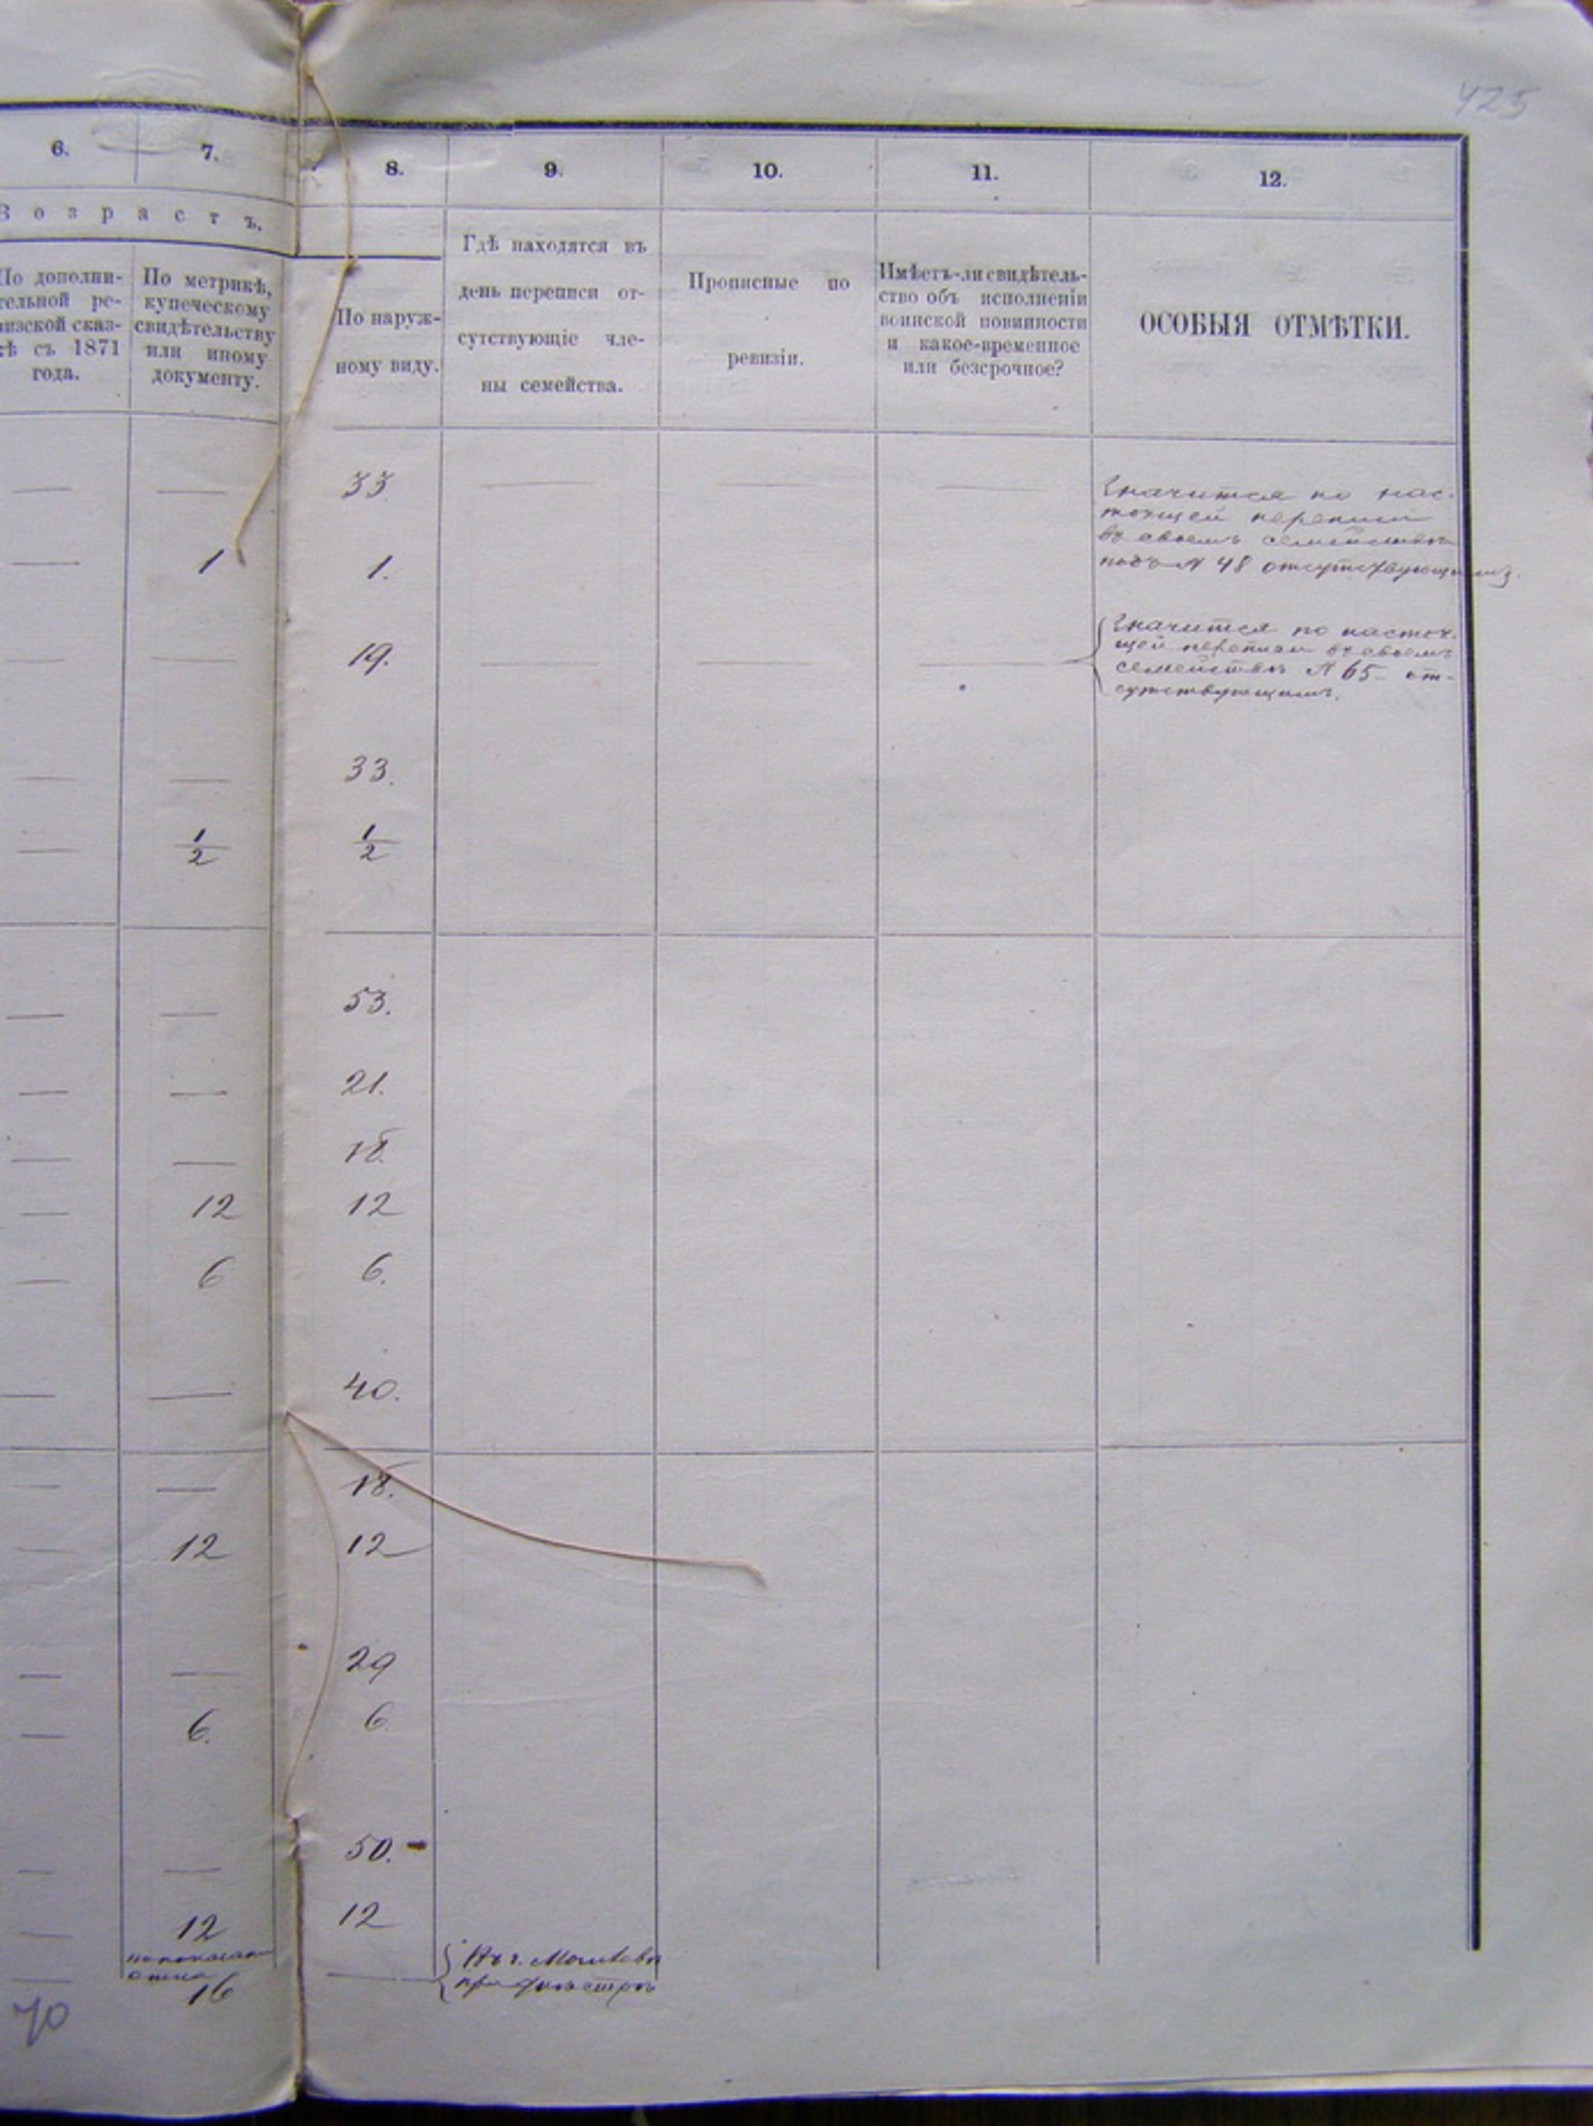 425
6. 7. 8. 9. 10. 11. 12.
Возрастъ.
По дополни-
тельной ре-
визской сказ-
кѣ съ 1871
года.
По метрикѣ,
купеческому
свидѣтельству
или иному
документу.
По наруж-
ному виду.
Гдѣ находятся въ
день переписи от-
сутствующіе чле-
ны семейства.
Прописные по
ревизіи.
Имѣетъ-ли свидѣтель-
ство объ исполненіи
воинской повинности
и какое-временное
или безсрочное?
ОСОБЫЯ ОТМѢТКИ.
— — 33 — — — Значится по нас-
тоящей переписи
въ своемъ семействѣ
подъ № 48 отсутствующимъ.
— 1 1.
— — 19. — — — Значится по настоя-
щей переписи въ своемъ
семействѣ № 65 от-
сутствующимъ.
— — 33.
— 1/2 1/2
— — 53.
— — 21.
— — 18
— 12 12
— 6 6.
— — 40.
— — 18.
— 12 12
— — 29
— 6. 6
— — 50.
— 12 12
— 16 — Въ г. Могилевѣ
при Днѣстрѣ
70